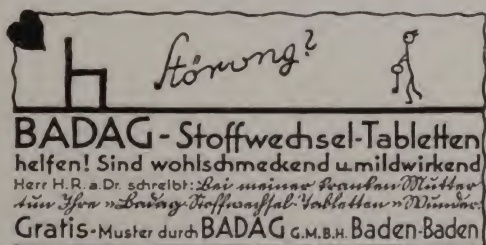 Störung?
BADAG - Stoffwechsel-Tabletten
helfen! Sind wohlschmeckend u. mildwirkend
Herr H.R. a. Dr. schreibt: Bei meiner kranken Mutter
tun Ihre „Badag-Stoffwechsel-Tabletten“ Wunder.
Gratis-Muster durch BADAG G.M.B.H. Baden-Baden